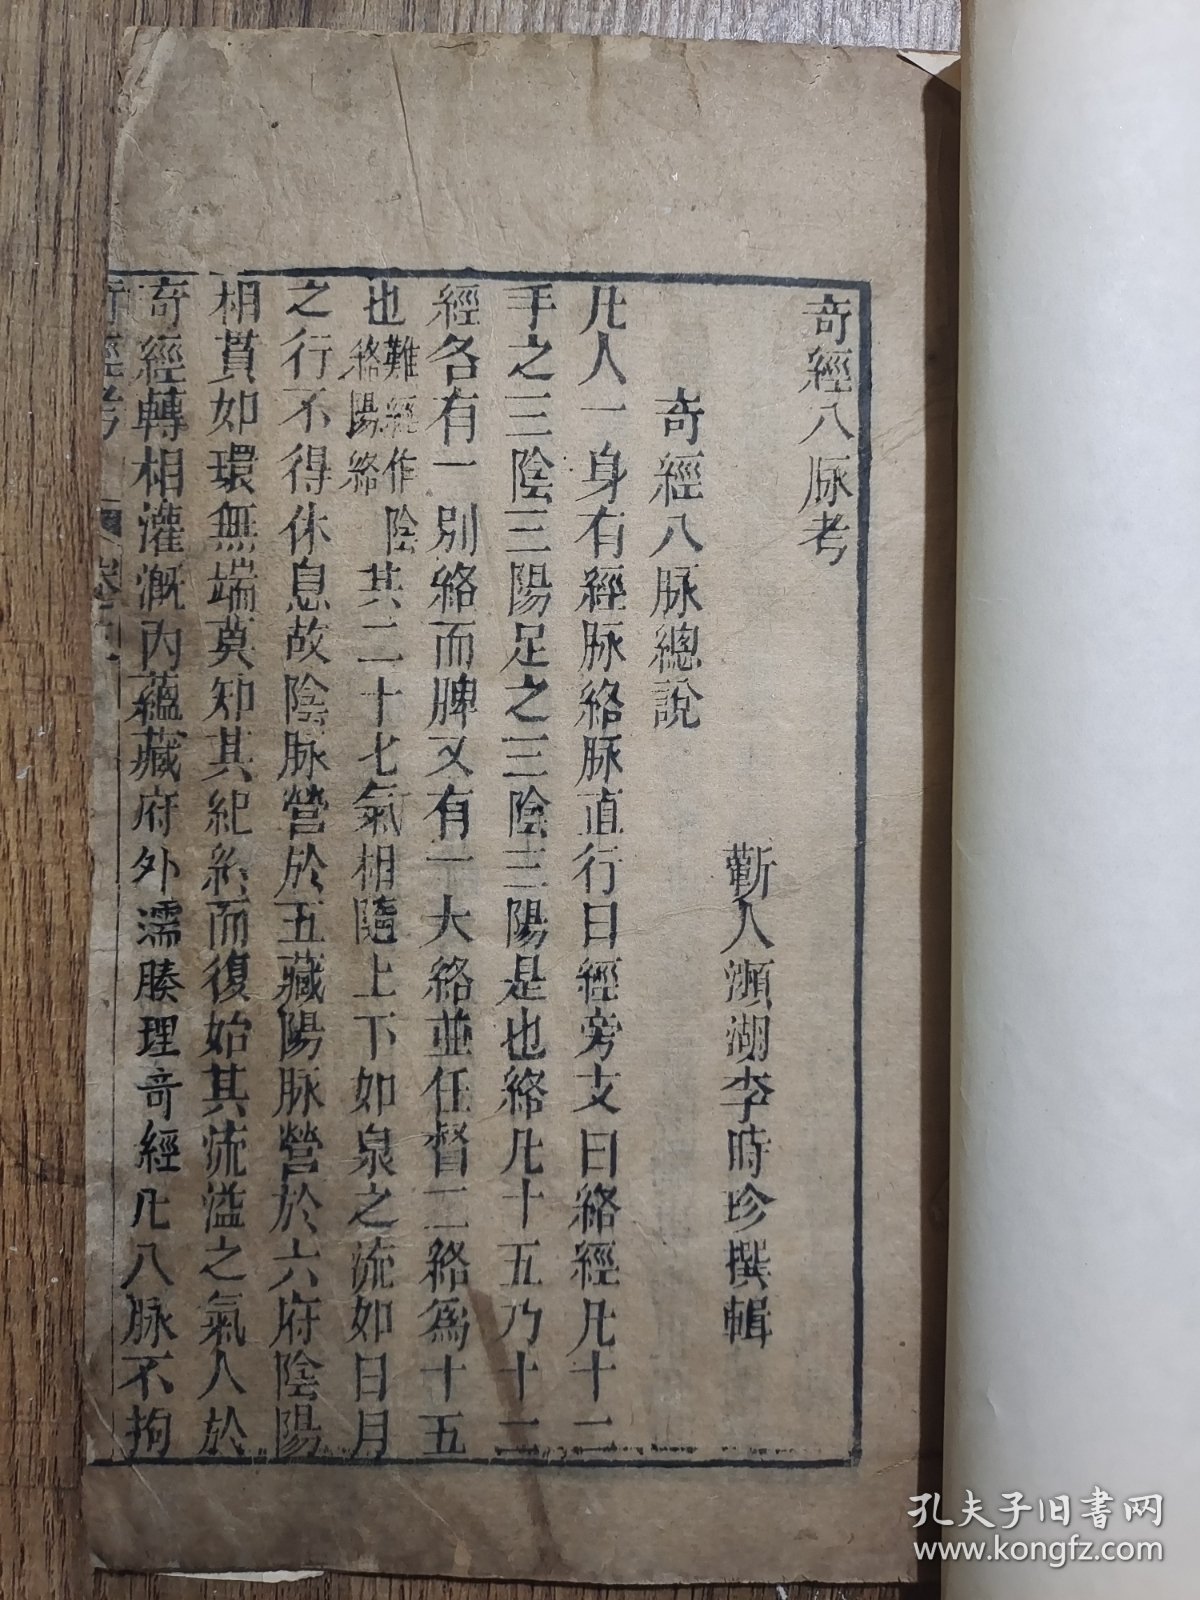 奇經八脉考
蘄人瀕湖李時珍撰輯
奇經八脉總說
凡人一身有經脉絡脉直行曰經旁支曰絡經凡十二
手之三陰三陽足之三陰三陽是也絡凡十五乃十二
經各有一別絡而脾又有一大絡並任督二絡爲十五
也難經作陰絡陽絡共二十七氣相隨上下如泉之流如日月
之行不得休息故陰脉營於五藏陽脉營於六府陰陽
相貫如環無端莫知其紀終而復始其流溢之氣入於
奇經轉相灌漑內蘊藏府外濡腠理奇經凡八脉不拘
奇經考
孔夫子旧书网
www.kongfz.com